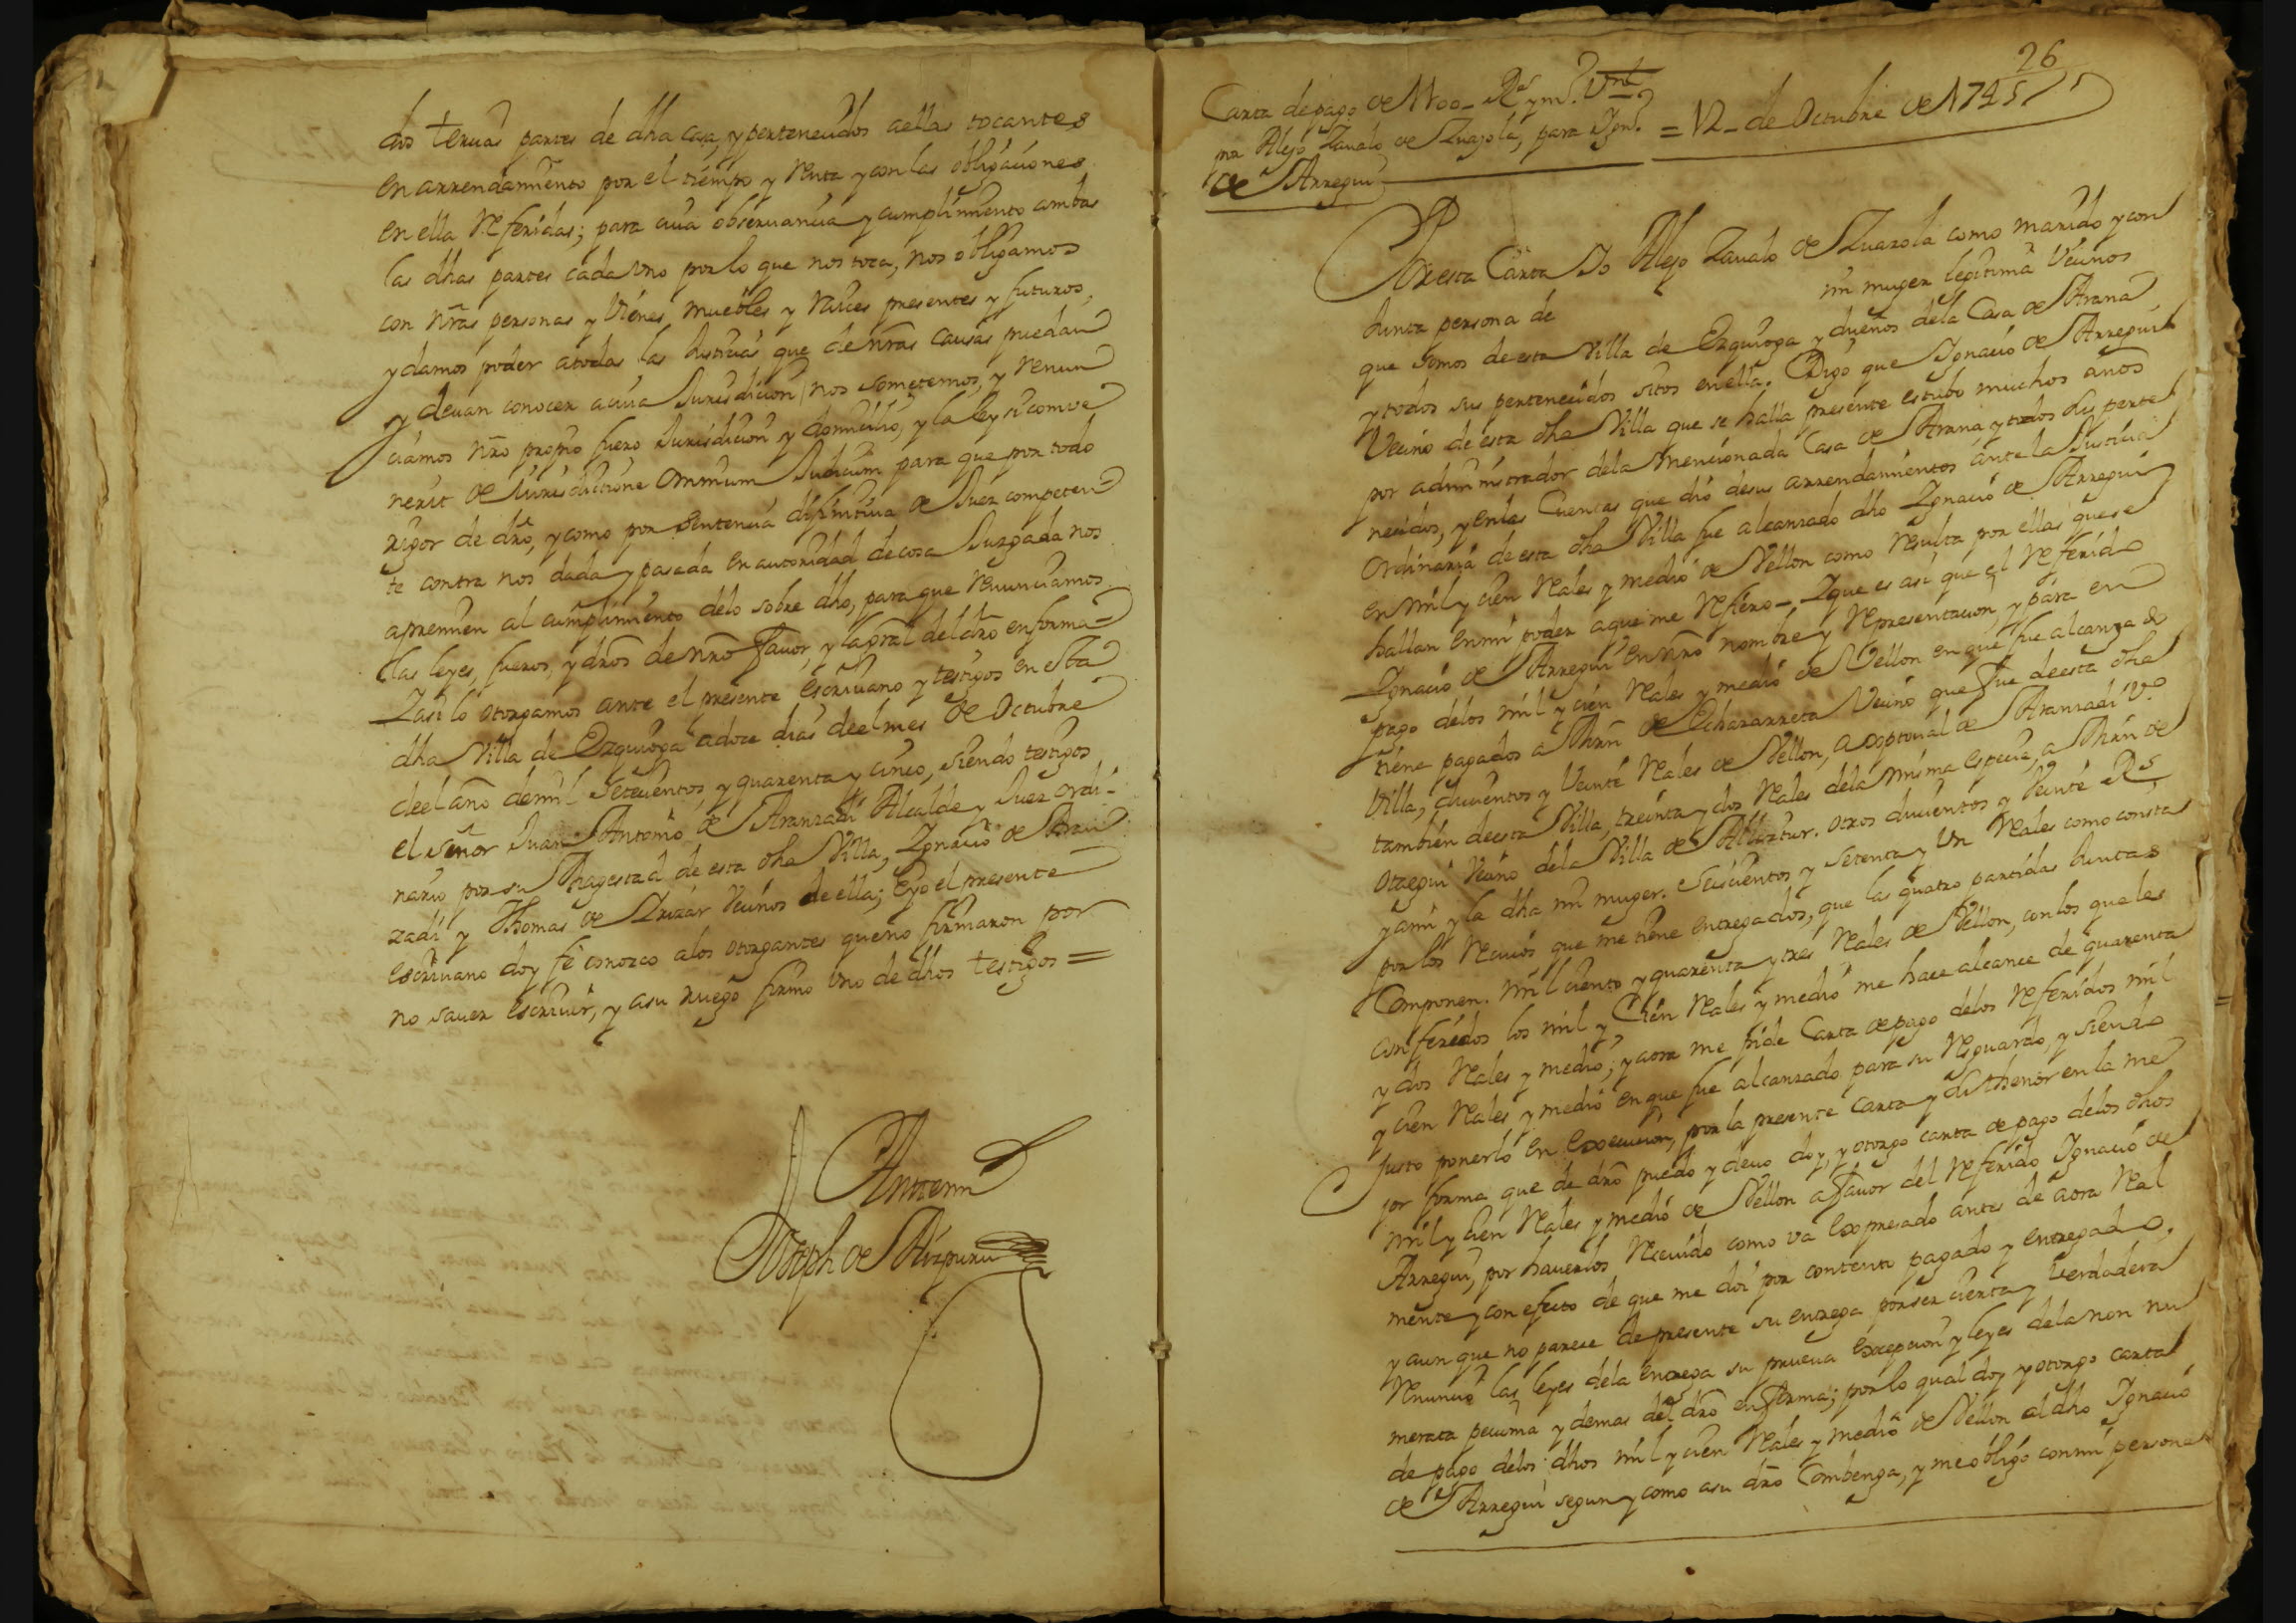 dos tercias partes de dha casa, y pertenecidos aellas tocantes
en arrendamiento por el tiempo y renta y con las obligaciones
en ella referidas; para cuia observancia y cumplimiento ambas
las dhas partes cada uno por lo que nos toca, nos obligamos
con nrãs personas y vienes, muebles y raices presentes y futuros,
y damos poder atodas las Justicias que de nrãs causas puedan
y devan conocer acuia Jurisdicion nos sometemos, y renun
ciamos nrõ propio fuero Jurisdicion y domicilio, y la ley si comve
nerit de Jurisdictione omnium Judicum para que por todo
rigor de drõ, y como por sentencia difinitiva de Juez competen
te contra nos dada y pasada en autoridad decosa Juzgada nos
apremien al cumplimiento delo sobre dho, para que renunciamos
las leyes, fueros, y drõs de nrõ favor, y la gral del drõ en forma=
Y asi lo otorgamos ante el presente escrivano y testigos en esta
dha Villa de Ezquioga adoce dias deel mes de Octubre
deel año demil setecientos y quarenta y cinco, siendo testigos
el señor Juan Antonio de Aranzadi Alcalde y Juez ordi-
nario por su Magestad de esta dha Villa, Ignacio de Aran
zadi y Thomas de Irizar vecinos de ella; E yo el presente
escrivano doy fe conozco alos otorgantes que no firmaron por
no saver escrivir, y asu ruego firmo uno de dhos testigos =
Antemi
Joseph de Aizpuru
26
Carta de pago de 1100- Rs y mº. Vnl
por Alejo Zavalo de Zuazola, para Ignº
de Arregui
= 12- de Octubre de 1745
Por esta Carta Yo Alejo Zavalo de Zuazola como marido y con
Junta persona de mi muger legitima vecinos
que somos de esta Villa de Ezquioga y dueños dela Casa de Arana
y todos sus pertenecidos sitos en ella. Digo que Ignacio de Arregui
vecino de esta dha Villa que se halla presente estubo muchos años
por administrador dela mencionada Casa de Arana y todos sus perte
necidos, y en las Cuentas que dio desus arrendamientos ante la Justicia
ordinaria de esta dha Villa fue alcanzado dho Ignacio de Arregui
en mil y cien reales y medio de Vellon como resulta por ellas que se
hallan en mi poder aque me refiero- Y que es asi que el referido
Ignacio de Arregui en nrõ nombre y representacion, y para en
pago delos mil y cien reales y medio de Vellon en que fue alcanzado
tiene pagados a Mrñ de Echazarreta vecino que fue deesta dha
Villa, ducientos y veinte reales de Vellon, a de Aranzadi vº
tambien deesta Villa, treinta y dos reales dela misma especie, a Mrñ de
Otaegui vecino dela Villa de Albiztur. otros ducientos y veinte Rs
yami y la dha mi muger. seiscientos y setenta y un reales como consta
por los recivos que me tiene entregados, que las quatro partidas Juntas
Componen. mil ciento y quarenta y tres reales de Vellon, con los quales
conferidos los mil y Cien reales y medio me hace alcance de quarenta
y dos reales y medio; y aora me pide Carta de pago delos referidos mil
y cien reales y medio en que fue alcanzado para su resguardo, y siendo
justo ponerlo en execucion, por la presente carta y su thenor en la me
jor forma que de drõ puedo y devo doy, y otorgo carta de pago delos dhos
mil y cien reales y medio de Vellon a favor del referido Ignacio de
Arregui, por haverlos recivido como va expresado antes de aora real
mente y con efecto de que me doi por contento pagado y entregado.
y aunque no parece de presente su entrega por ser cierta y verdadera
renuncio las leyes dela entrega su prueva excepcion y leyes dela non nu
merata pecunia y demas del drõ en forma; por lo qual doy y otorgo carta
de pago delos dhos mil y cien reales y medio de Vellon al dho Ignacio
de Arregui segun y como asu drõ Combenga, y me obligo con mi persona